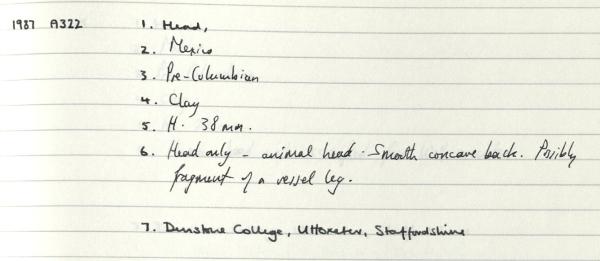 1987 A322 1. Head,
2. Mexico
3. Pre-Columbian
4. Clay
5. H. 38mm.
6. Head only - animal head. Smooth concave back. Possibly
fragment of a vessel leg.
7. Denstone College, Uttoxeter, Staffordshire